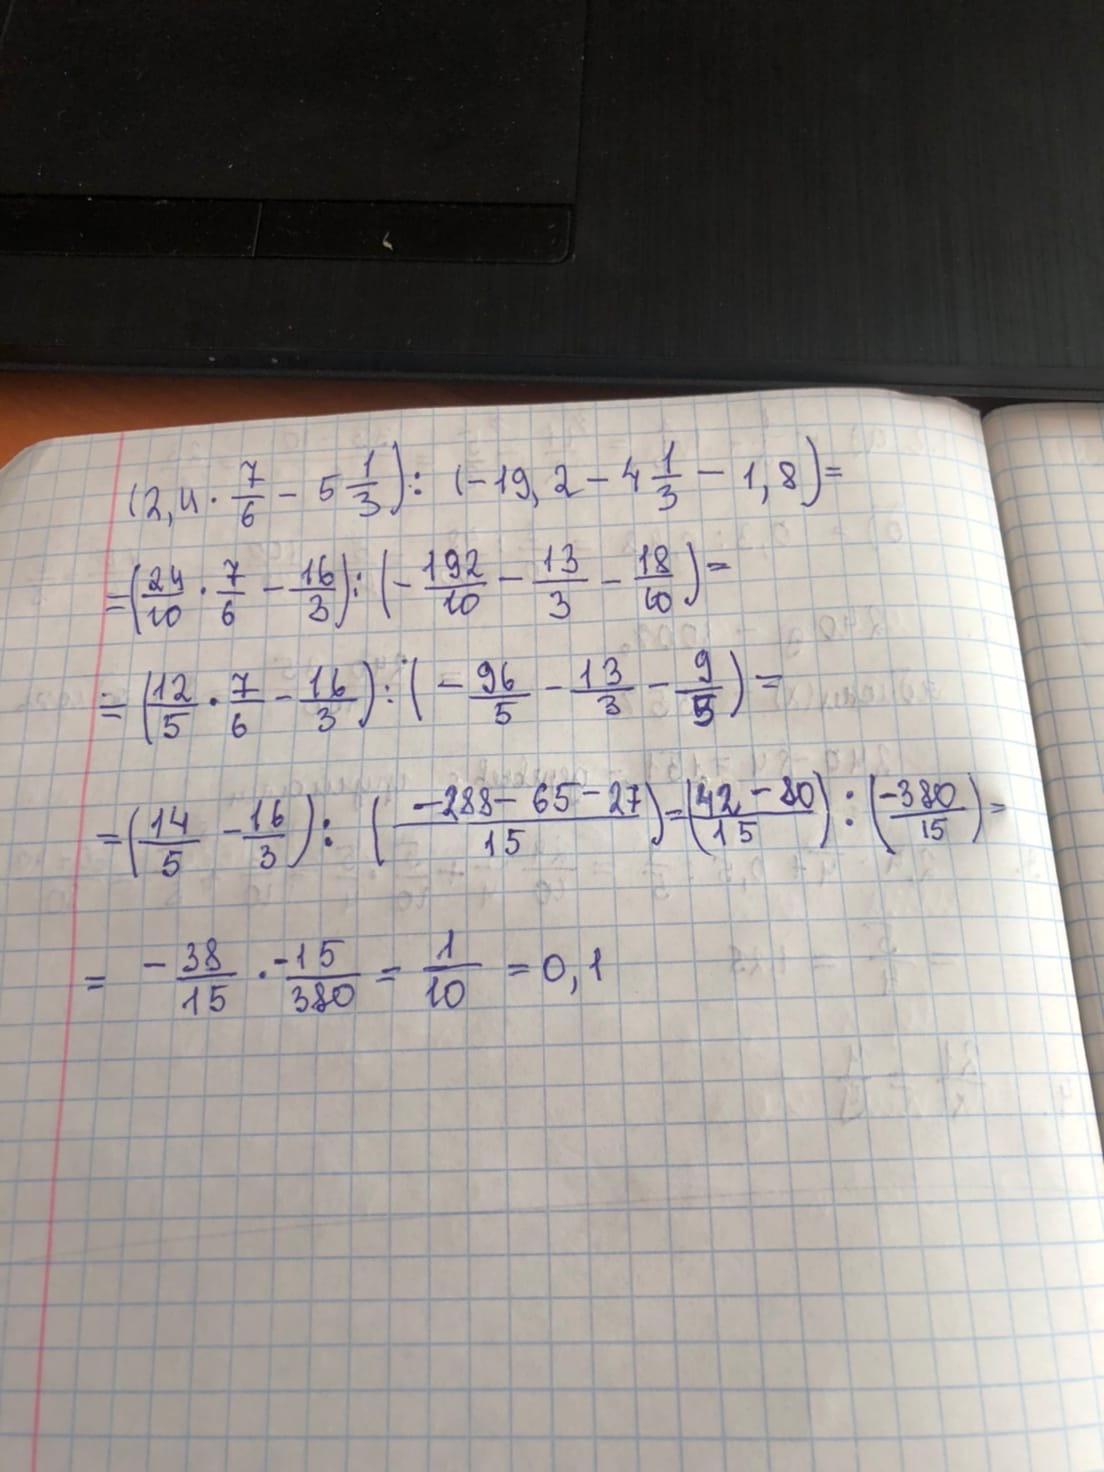 (2,4 · 7/6 − 5 1/3) : (−19,2 − 4 1/3 − 1,8) =
= (24/10 · 7/6 − 16/3) : (− 192/10 − 13/3 − 18/10) =
= (12/5 · 7/6 − 16/3) : (− 96/5 − 13/3 − 9/5) =
= (14/5 − 16/3) : (−288 − 65 − 27 / 15) = (42 − 80 / 15) : (−380/15) =
= − 38/15 · −15/380 = 1/10 = 0,1